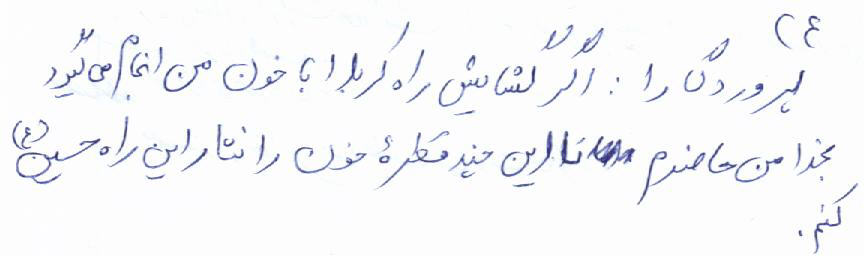 ۲۴
پروردگارا : اگر گشایش راه کربلا با خون من انجام می‌گیرد
بخدا من حاضرم تا این چند قطرهٔ خون را نثار این راه حسین (ع)
کنم.